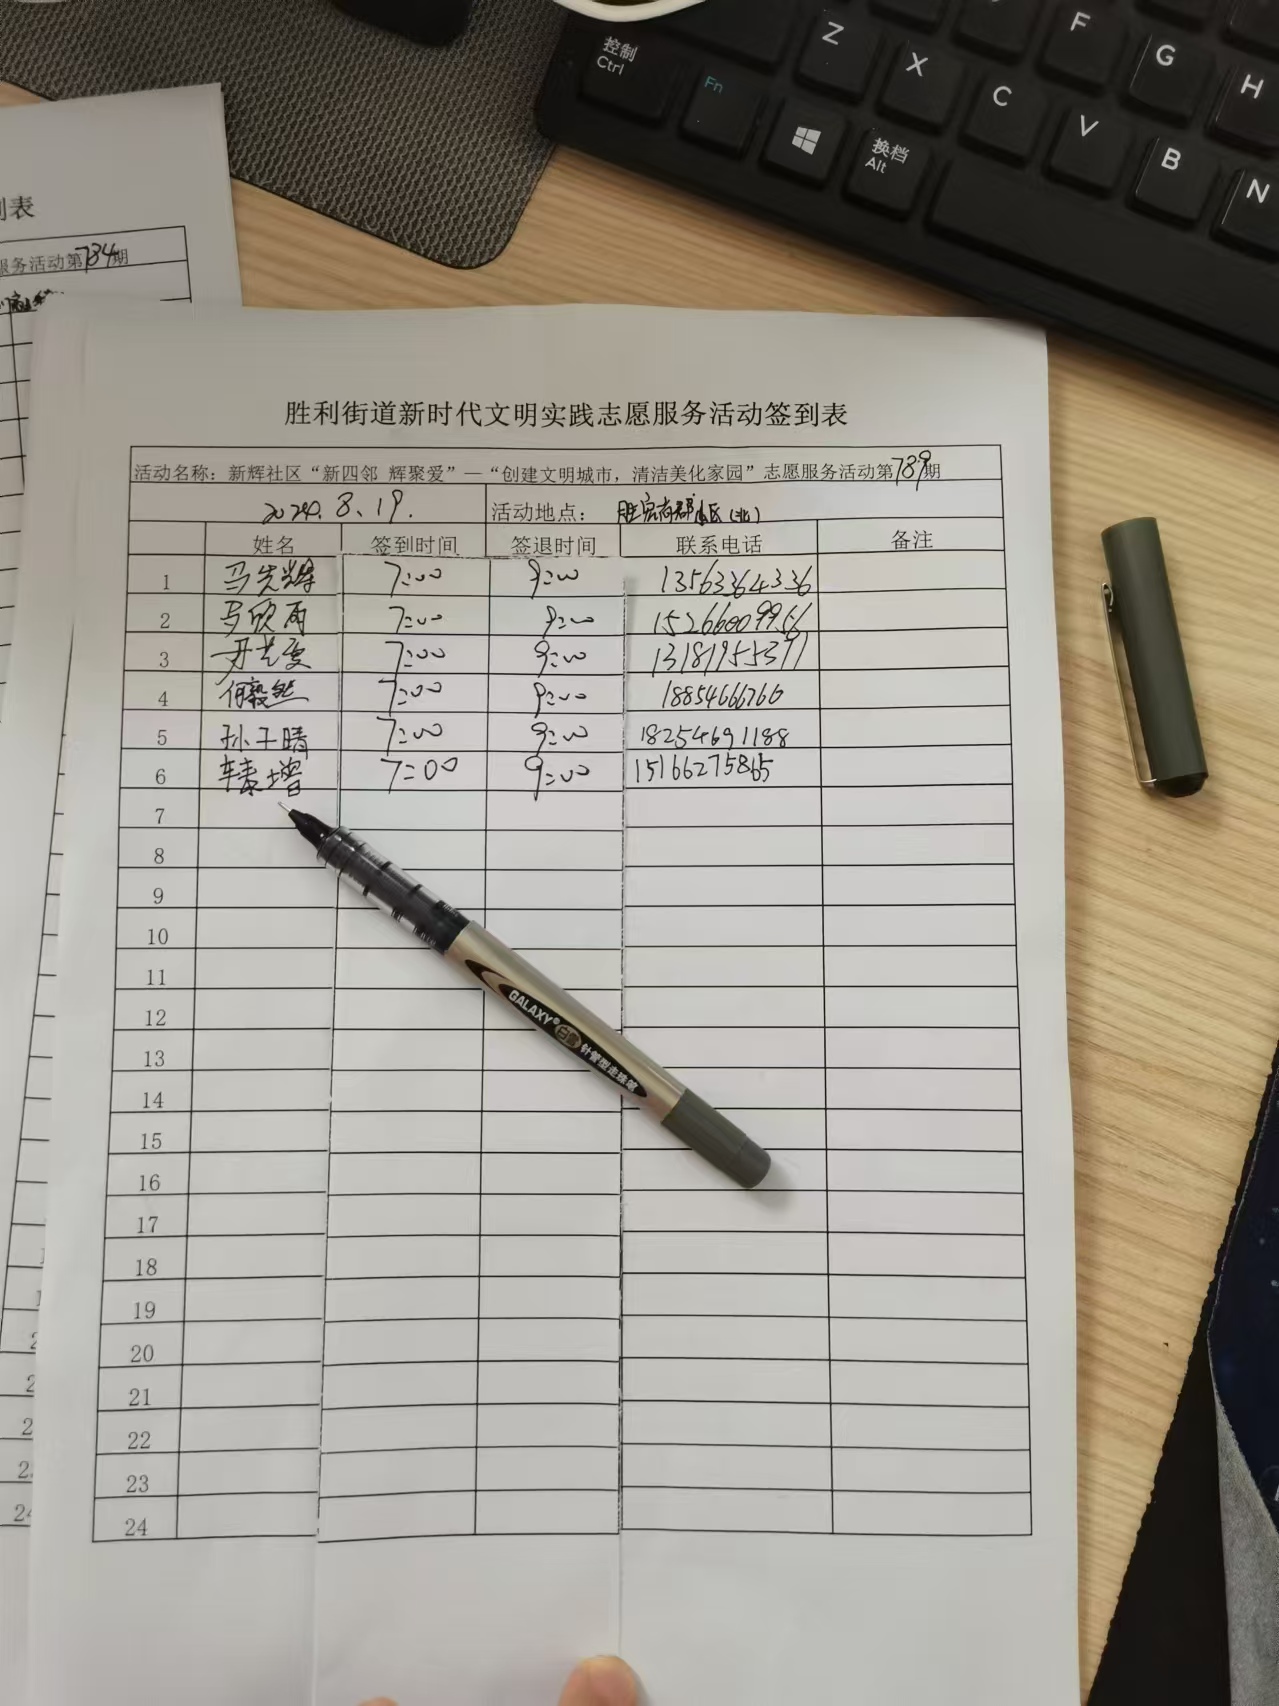 控制
Ctrl
Fn
Z
X
C
V
B
N
F
G
H
换档
Alt
到表
服务活动第734期
胜利街道新时代文明实践志愿服务活动签到表
活动名称：新辉社区“新四邻 辉聚爱”—“创建文明城市，清洁美化家园”志愿服务活动第789期
2024.8.19. 活动地点： 胜宏尚郡小区（北）
姓名 签到时间 签退时间 联系电话 备注
1 马先辉 7:00 9:00 13563364336
2 马欣雨 7:00 9:00 15266009966
3 7:00 9:00 13181955391
4 何毅然 7:00 9:00 18854666766
5 孙子晴 7:00 9:00 18254691188
6 7:00 9:00 15166275865
7
8
9
10
11
12
13
14
15
16
17
18
19
20
21
22
23
24
GALAXY® 白雪 针管型走珠笔
24